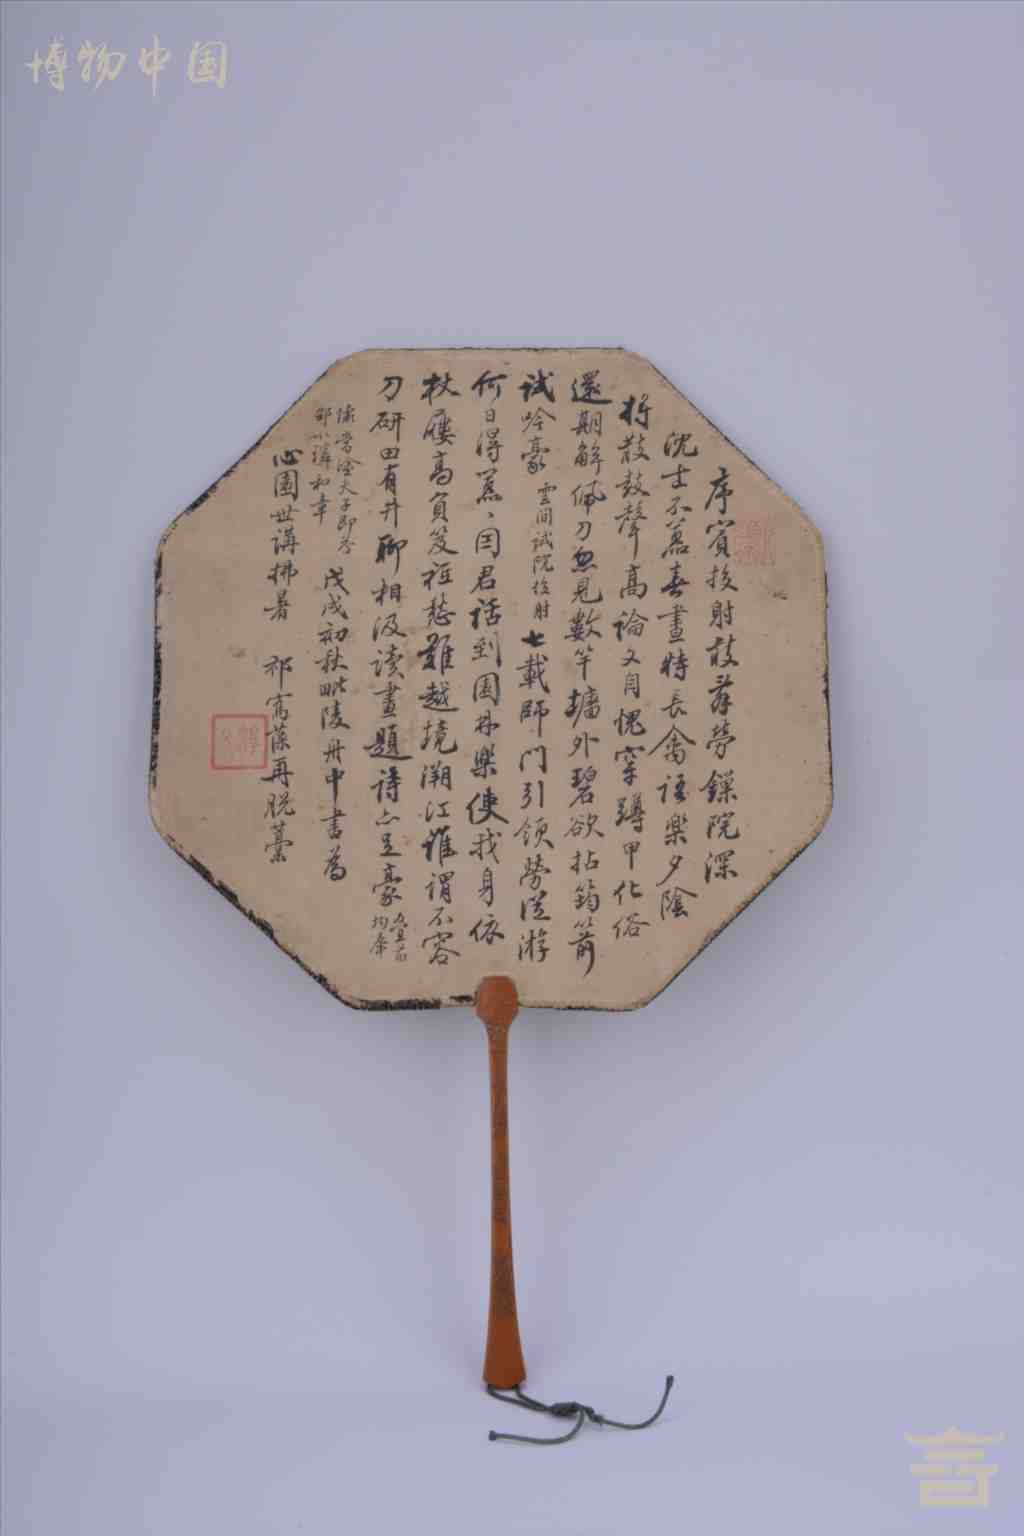 博物中国
序賓投射鼓屢勞鏁院深
沈士不囂春晝特長禽語樂夕陰
將散鼓聲高論文自愧穿蹲甲化俗
還期解佩刀忽見數竿牆外碧欲拈筠箭
試吟豪 雲間試院投射 七載師門引領勞從游
何日得 君話到園林樂使我身依
杖履高負笈 愁難越境溯江誰謂不容
刀研田有井聊相汲讀畫題詩亦足豪 疊前
均奉
懷 夫子即
邵 和章 戊戌初秋毗陵舟中書為
心園世講拂暑 祁寯藻再脫藁